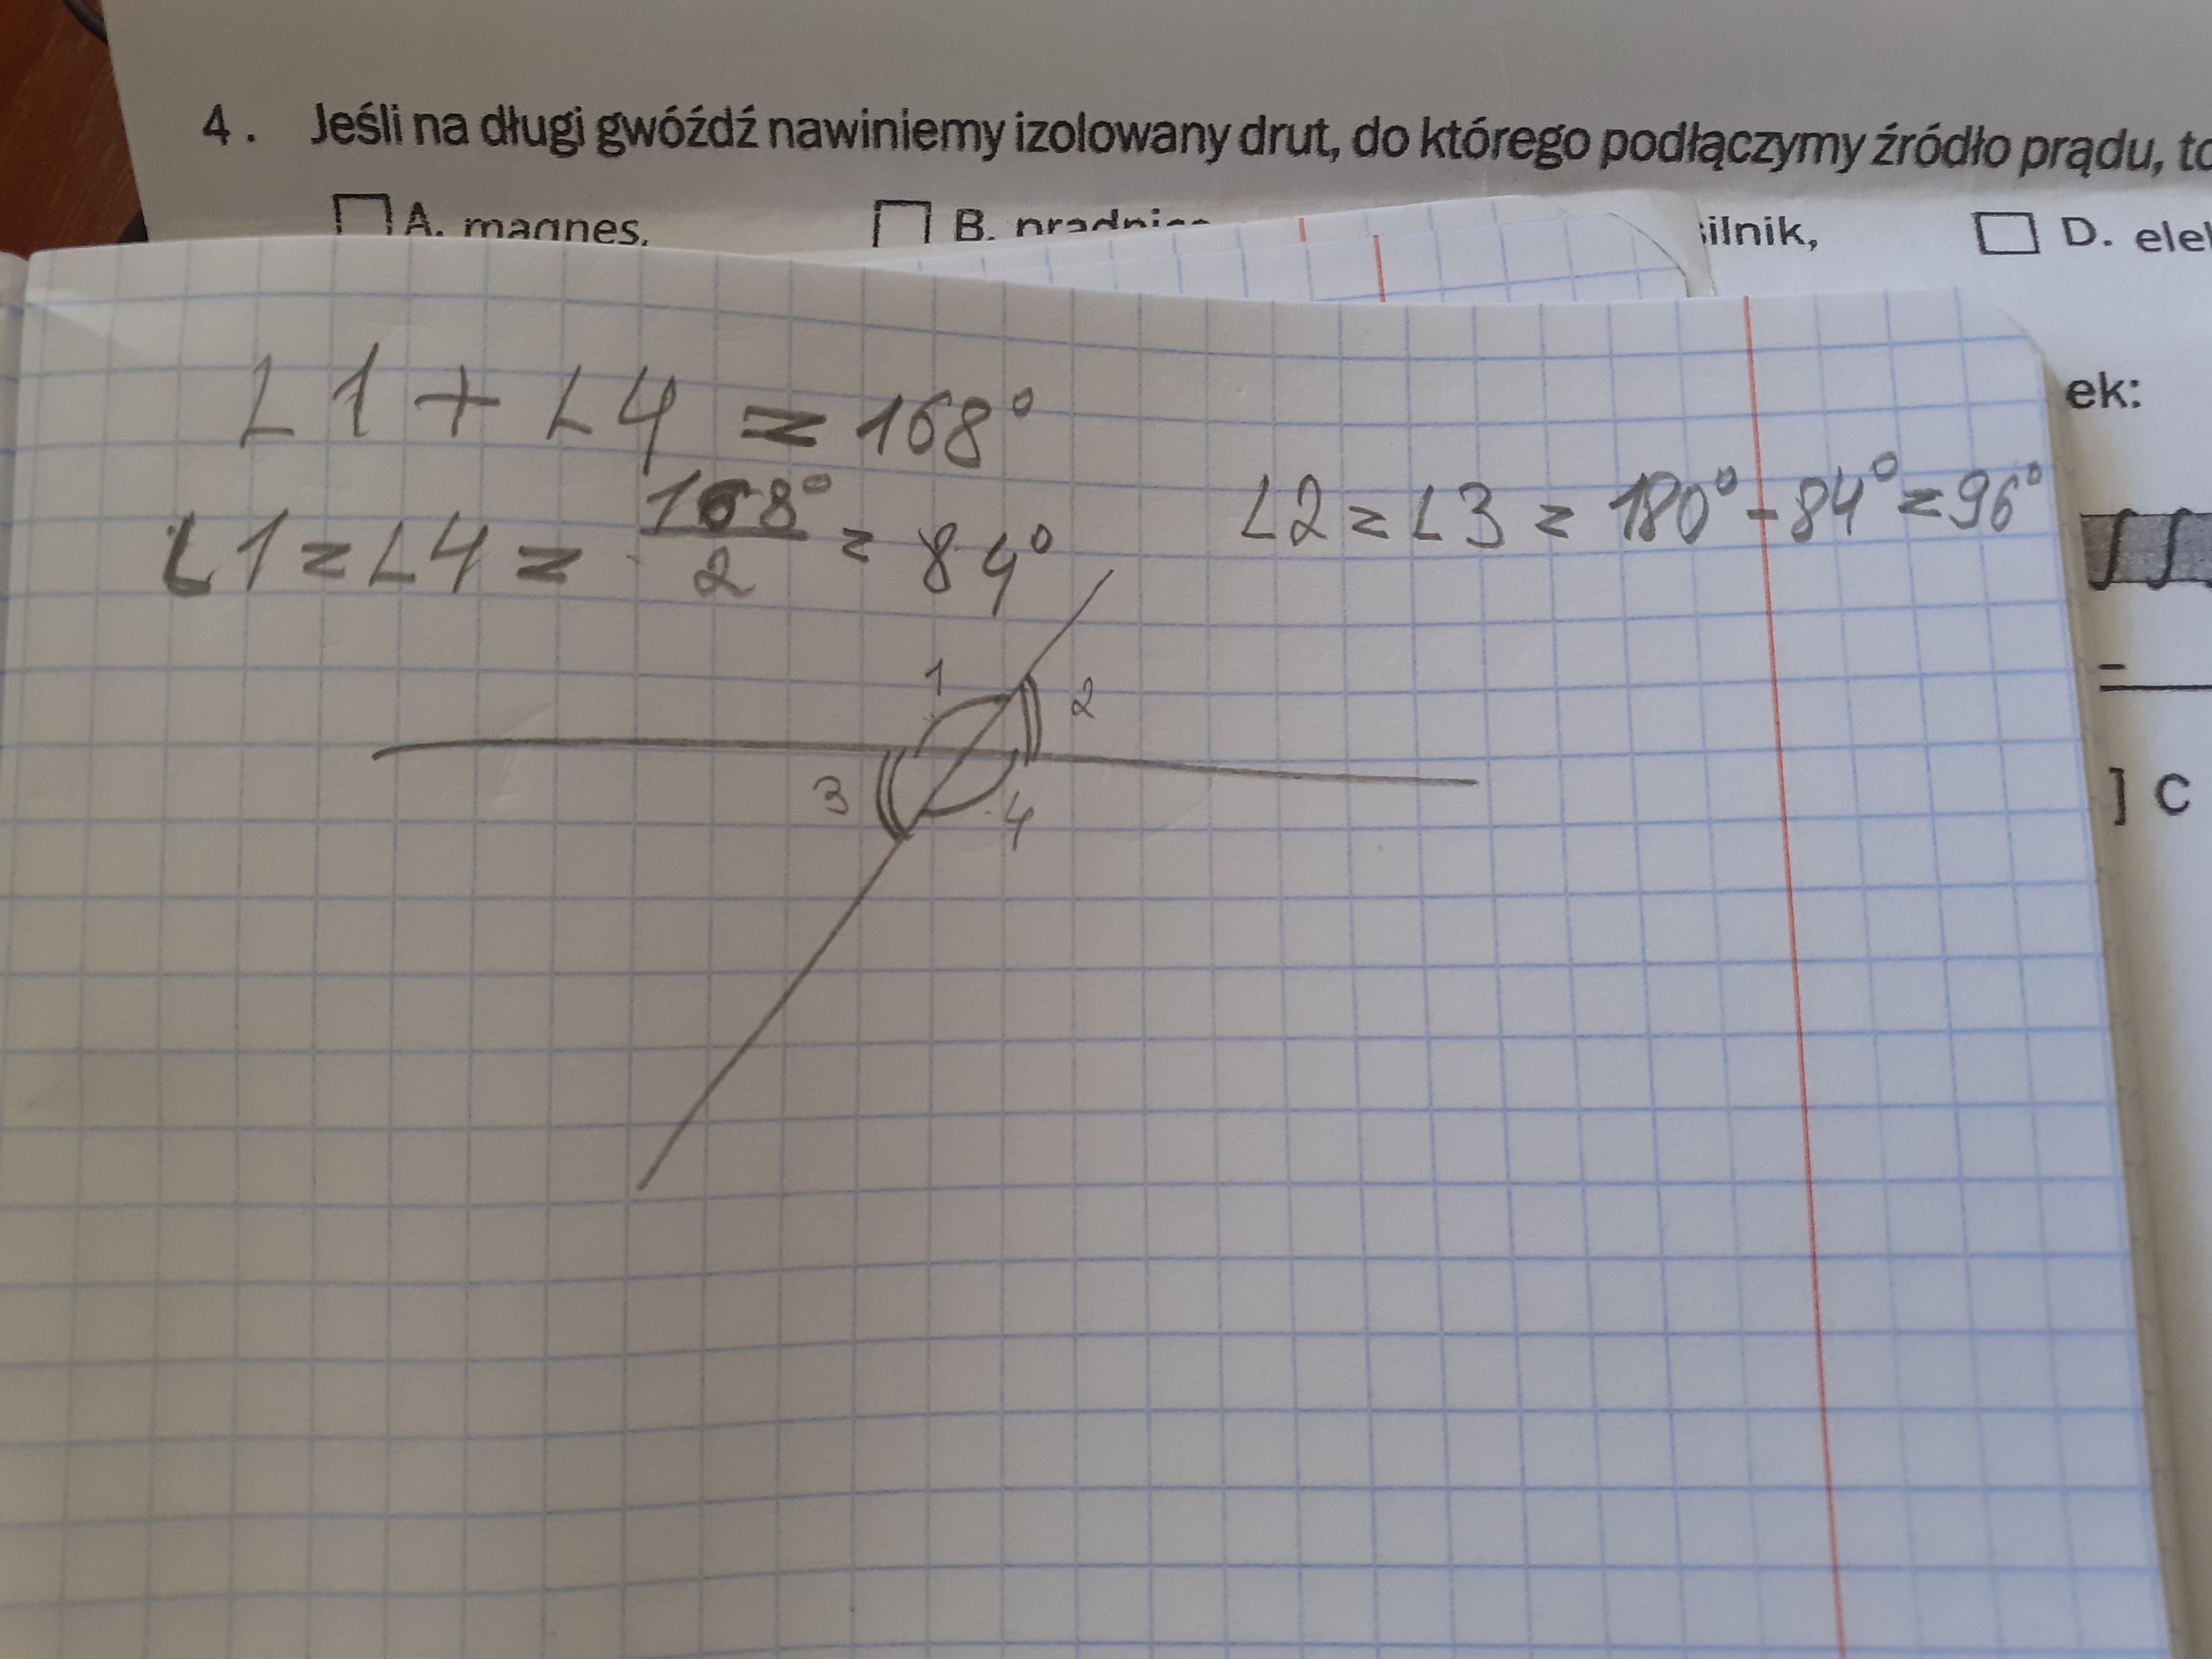 4. Jeśli na długi gwóźdź nawiniemy izolowany drut, do którego podłączymy źródło prądu, to
A. magnes,
B.
silnik,
D. ele
ek:
∠1 + ∠4 = 168°
∠1 = ∠4 = 168°/2 = 84°
∠2 = ∠3 = 180° - 84° = 96°
1
2
3
4
] C